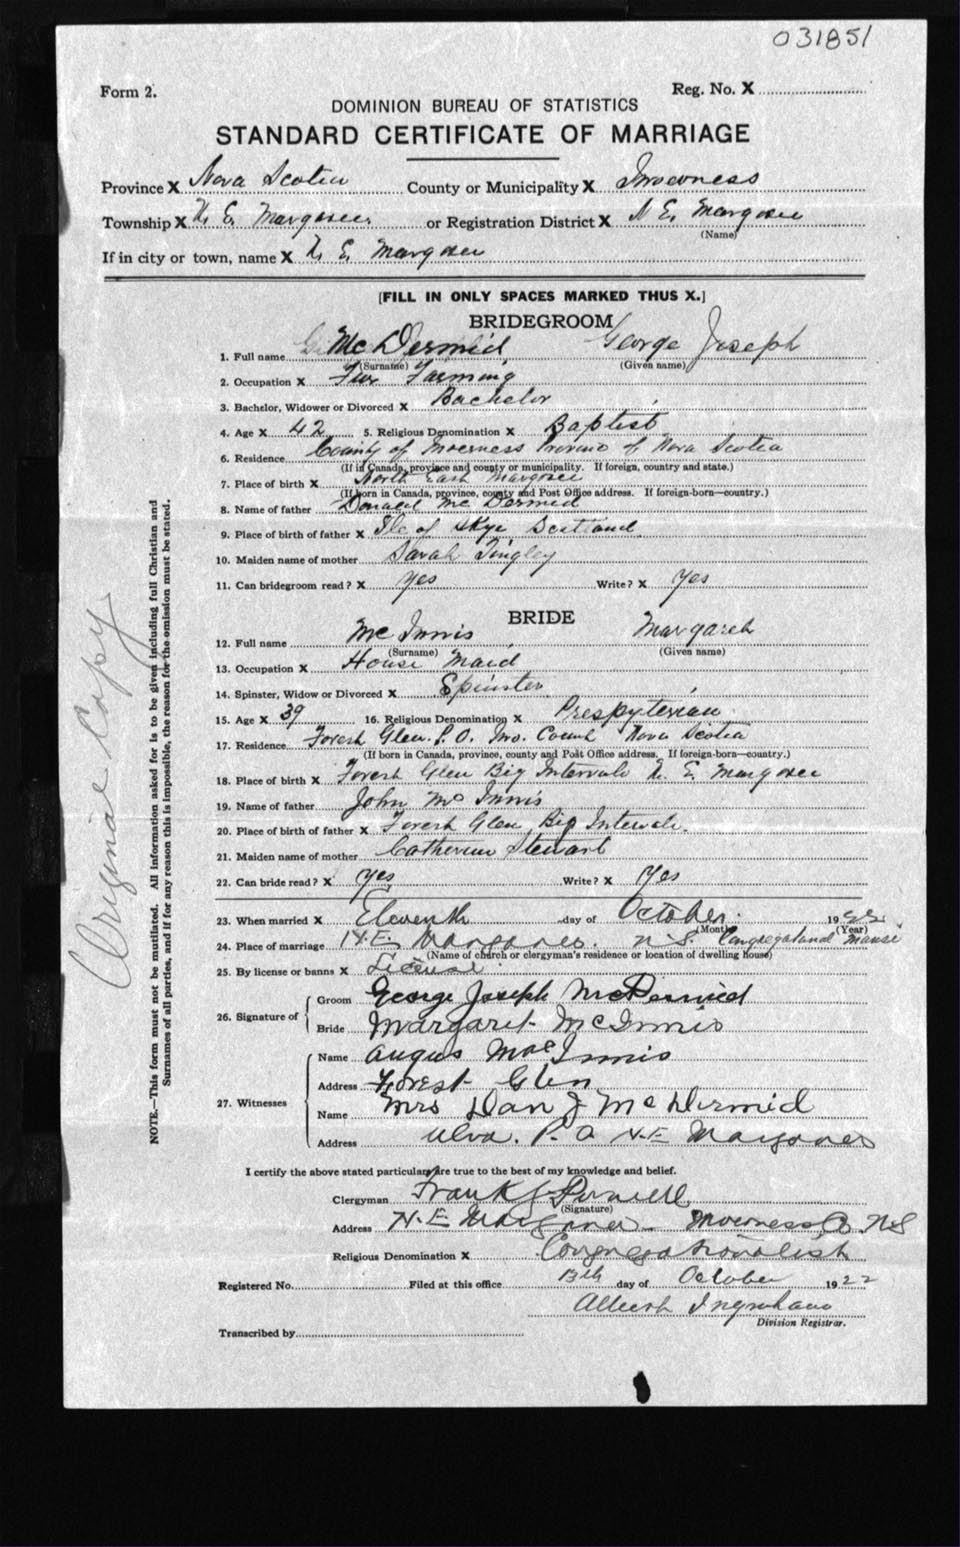 031851
Form 2.
Reg. No. X
DOMINION BUREAU OF STATISTICS
STANDARD CERTIFICATE OF MARRIAGE
Province X Nova Scotia County or Municipality X Inverness
Township X N. E. Margaree. or Registration District X N E. Margaree
(Name)
If in city or town, name X N. E. Margaree
[FILL IN ONLY SPACES MARKED THUS X.]
BRIDEGROOM
1. Full name McDermid George Joseph
(Surname) (Given name)
2. Occupation X Fur Farming
3. Bachelor, Widower or Divorced X Bachelor
4. Age X 42 5. Religious Denomination X Baptist
6. Residence County of Inverness Province of Nova Scotia
(If in Canada, province and county or municipality. If foreign, country and state.)
7. Place of birth X North East Margaree
(If born in Canada, province, county and Post Office address. If foreign-born—country.)
8. Name of father Donald McDermid
9. Place of birth of father X Ile of Skye Scotland
10. Maiden name of mother Sarah Tingley
11. Can bridegroom read? X Yes Write? X Yes
BRIDE
12. Full name McInnis, Margaret
(Surname) (Given name)
13. Occupation X House Maid
14. Spinster, Widow or Divorced X Spinster
15. Age X 39 16. Religious Denomination X Presbyterian
17. Residence Forest Glen P.O. Inv. Count Nova Scotia
(If born in Canada, province, county and Post Office address. If foreign-born—country.)
18. Place of birth X Forest Glen Big Intervale N. E. Margaree
19. Name of father John McInnis
20. Place of birth of father X Forest Glen Big Intervale.
21. Maiden name of mother Catherine Stewart
22. Can bride read? X Yes Write? X Yes
23. When married X Eleventh day of October. 1922
(Month) (Year)
24. Place of marriage N.E. Margaree. N.S. Congregational Manse
(Name of church or clergyman's residence or location of dwelling house)
25. By license or banns X License
26. Signature of Groom George Joseph McDermid
Bride Margaret McInnis
27. Witnesses Name Angus MacInnis
Address Forest Glen
Name Mrs Dan J McDermid
Address Ulva. P.O N.E Margaree
I certify the above stated particulars are true to the best of my knowledge and belief.
Clergyman Frank J. Purnell
(Signature)
Address N.E Margaree Inverness Co. N.S
Religious Denomination X Congregationalist
Registered No. Filed at this office 13th day of October 1922
Albert Ingraham
Division Registrar.
Transcribed by
NOTE.—This form must not be mutilated. All information asked for is to be given including full Christian and
Surnames of all parties, and if for any reason this is impossible, the reason for the omission must be stated.
Original Copy